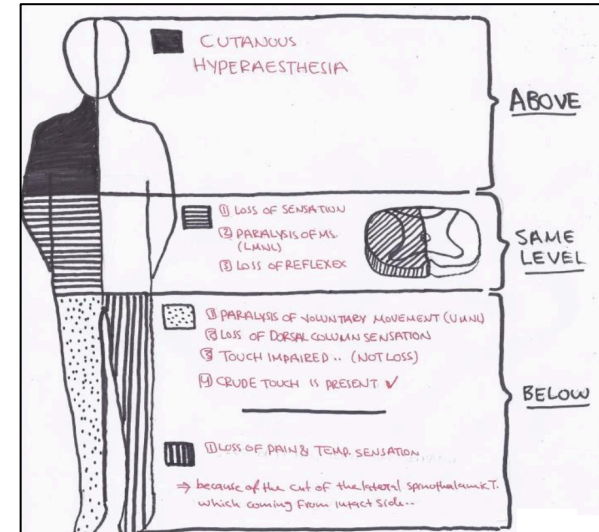 CUTANOUS
HYPERAESTHESIA
ABOVE
① LOSS OF SENSATION
② PARALYSIS OF MS
(LMNL)
③ LOSS OF REFLEXEX
SAME
LEVEL
① PARALYSIS OF VOLUNTARY MOVEMENT (UMNL)
② LOSS OF DORSAL COLUMN SENSATION
③ TOUCH IMPAIRED .. (NOT LOSS)
④ CRUDE TOUCH IS PRESENT ✓
BELOW
① LOSS OF PAIN & TEMP. SENSATION
⇒ because of the cut of the lateral spinothalamic T.
which coming from intact side..